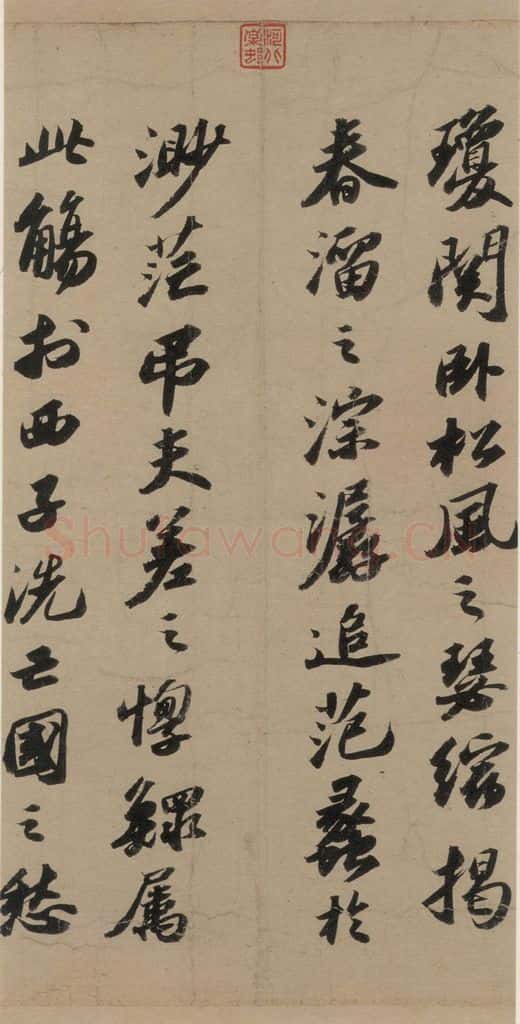 瓊關卧松風之瑟縮揭
春溜之淙潺追范蠡於
渺茫吊夫差之惸鰥属
此觴於西子洗亡國之愁
Shufawang.CN